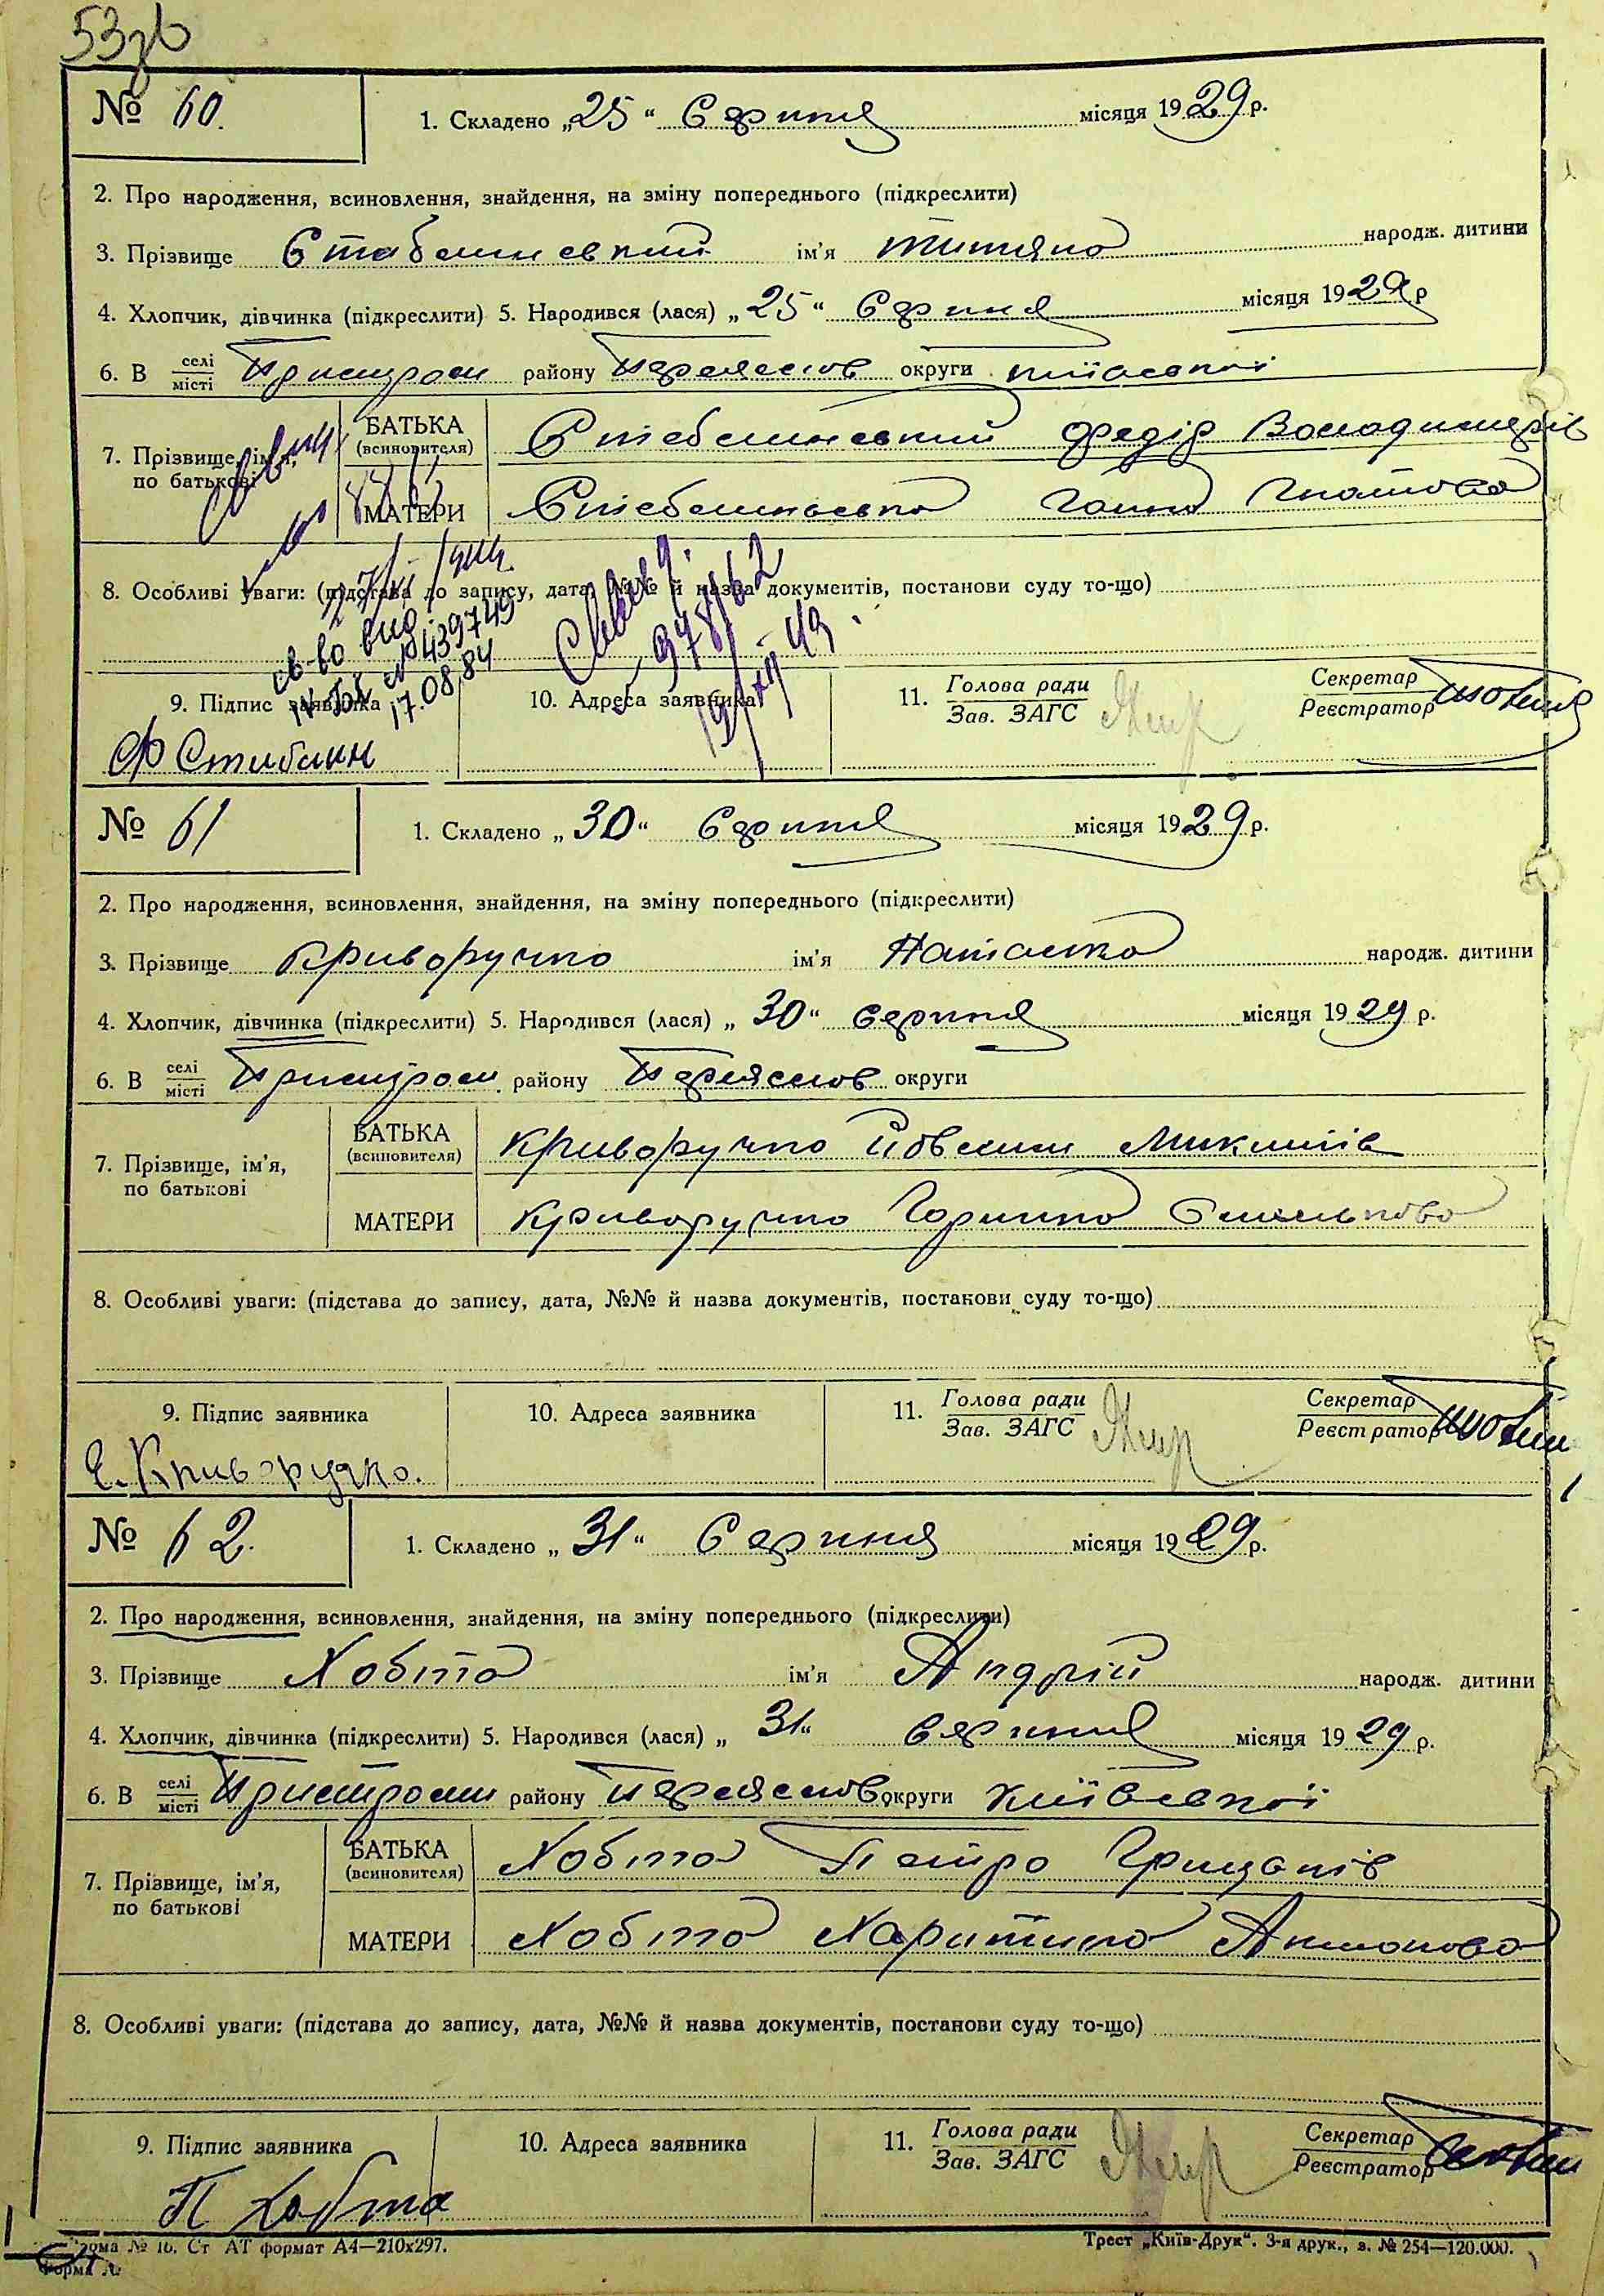 53зв
№ 60.
1. Складено „25“ Серпня місяця 1929 р.
2. Про народження, всиновлення, знайдення, на зміну попереднього (підкреслити)
3. Прізвище ім'я Титяна народж. дитини
4. Хлопчик, дівчинка (підкреслити) 5. Народився (лася) „25“ Серпня місяця 1929 р
6. В селі/місті Пристроми району Переяслов округи Київської
7. Прізвище, ім'я, по батькові
БАТЬКА (всиновителя) Стеблинський Федір Володимирів
МАТЕРИ Стеблинська Ганна Гнатова
8. Особливі уваги: (підстава до запису, дата, №№ й назва документів, постанови суду то-що)
св-во
№ 439749
17.08.84
978/62
9. Підпис заявника 10. Адреса заявника 11. Голова ради/Зав. ЗАГС Секретар/Реєстратор
№ 61
1. Складено „30“ Серпня місяця 1929 р.
2. Про народження, всиновлення, знайдення, на зміну попереднього (підкреслити)
3. Прізвище Криворучко ім'я Наталка народж. дитини
4. Хлопчик, дівчинка (підкреслити) 5. Народився (лася) „30“ Серпня місяця 1929 р.
6. В селі/місті Пристроми району Переяслов округи
7. Прізвище, ім'я, по батькові
БАТЬКА (всиновителя) Криворучко Микитів
МАТЕРИ Криворучко Горпина Омелькова
8. Особливі уваги: (підстава до запису, дата, №№ й назва документів, постанови суду то-що)
9. Підпис заявника 10. Адреса заявника 11. Голова ради/Зав. ЗАГС Секретар/Реєстратор
Е. Криворучко.
№ 62.
1. Складено „31“ Серпня місяця 1929 р.
2. Про народження, всиновлення, знайдення, на зміну попереднього (підкреслити)
3. Прізвище Хобта ім'я Андрій народж. дитини
4. Хлопчик, дівчинка (підкреслити) 5. Народився (лася) „31“ Серпня місяця 1929 р.
6. В селі/місті Пристроми району Переяслов округи Київської
7. Прізвище, ім'я, по батькові
БАТЬКА (всиновителя) Хобта Петро Грицьків
МАТЕРИ Хобта Харитина Антонова
8. Особливі уваги: (підстава до запису, дата, №№ й назва документів, постанови суду то-що)
9. Підпис заявника 10. Адреса заявника 11. Голова ради/Зав. ЗАГС Секретар/Реєстратор
П Хобта
Форма № 16. Ст АТ формат А4—210х297. Трест „Київ-Друк“. 3-я друк., з. № 254—120.000.